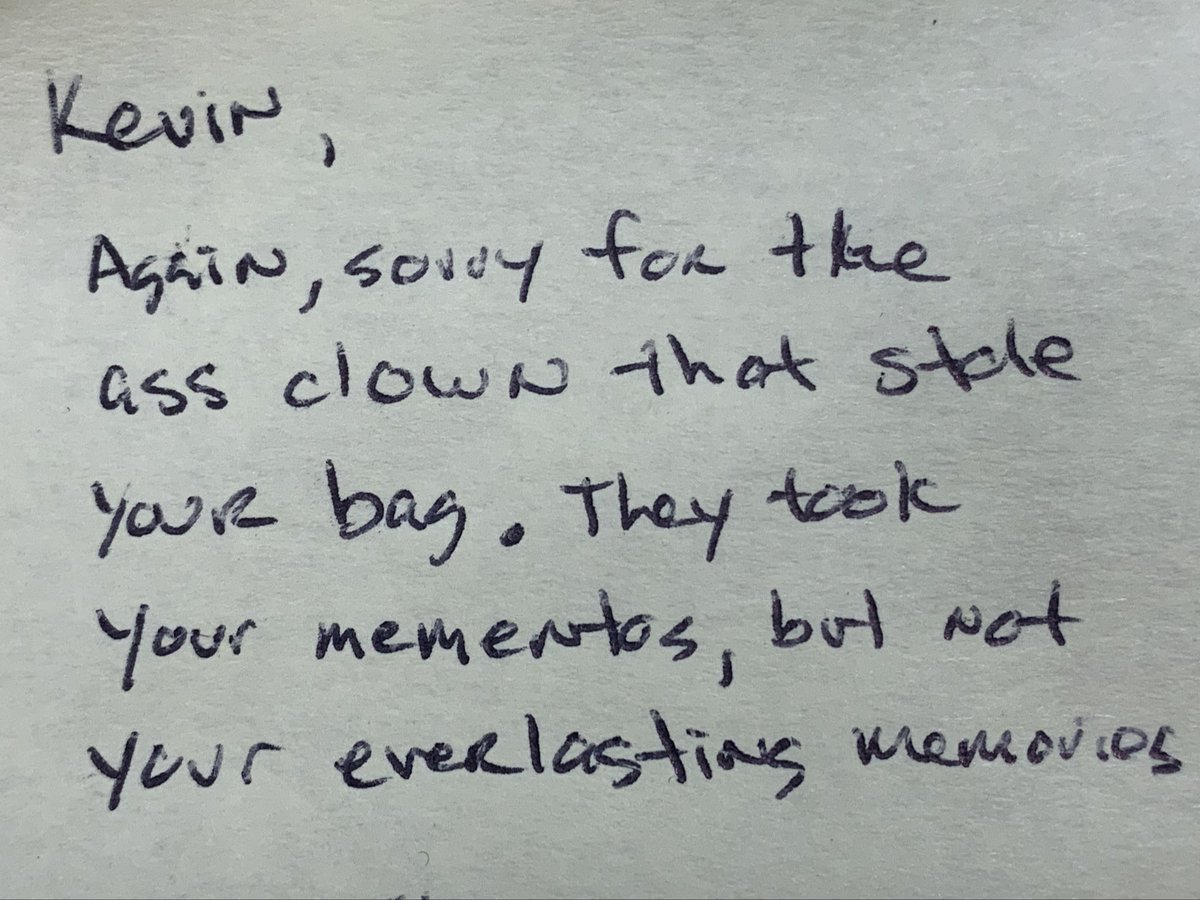 Kevin,
Again, sorry for the
ass clown that stole
your bag. They took
your mementos, but not
your everlasting memories